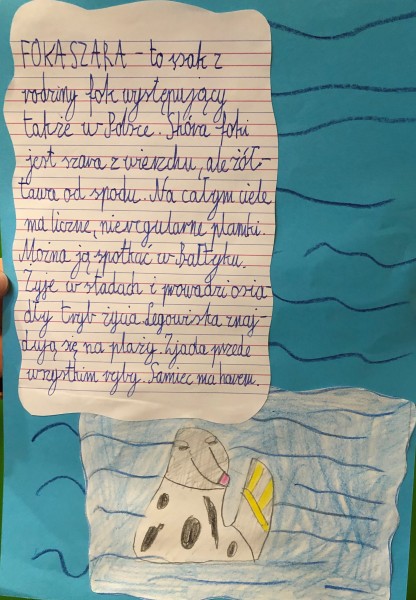 FOKA SZARA – to ssak z
rodziny fok występujący
także w Polsce. Skóra foki
jest szara z wierzchu, ale żół-
tawa od spodu. Na całym ciele
ma liczne, nieregularne plamki.
Można ją spotkać w Bałtyku.
Żyje w stadach i prowadzi osia-
dły tryb życia. Legowiska znaj-
dują się na plaży. Zjada przede
wszystkim ryby. Samiec ma harem.